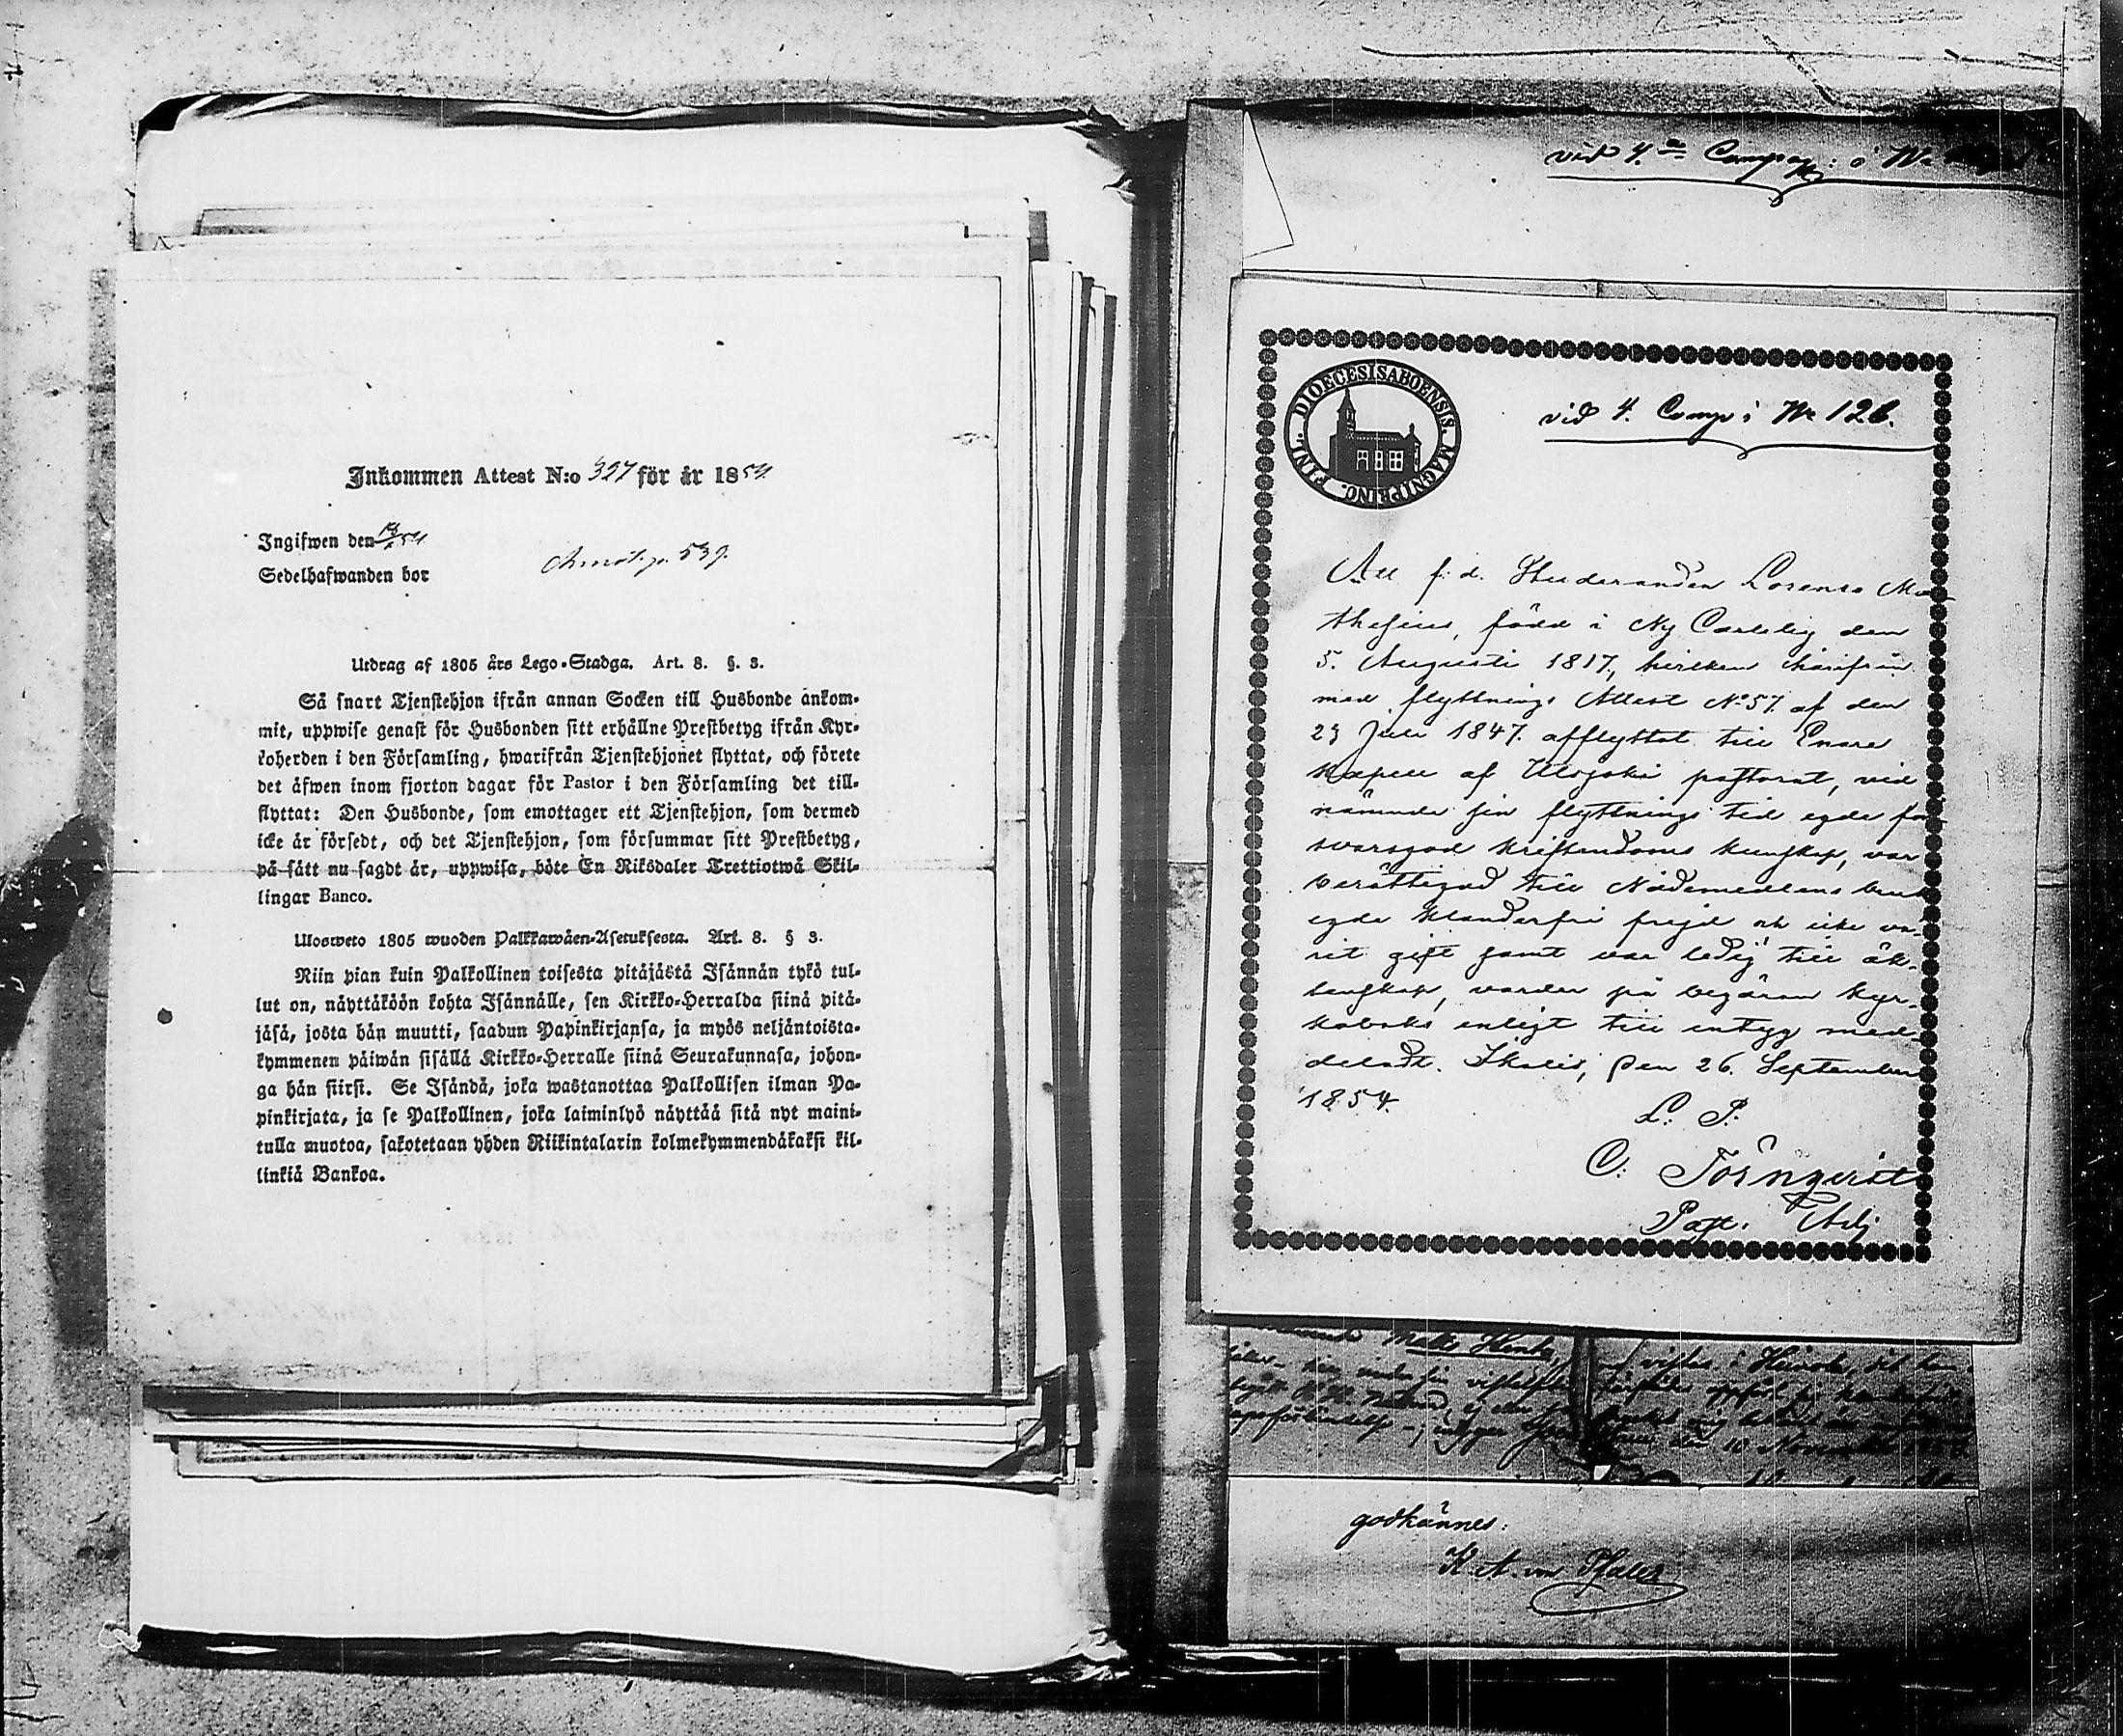 Inkommen Attest N:o 327 för år 1854.
Ingifwen den
Sedelhafwanden bor
Utdrag af 1805 års Lego-Stadga. Art. 8. §. 3.
Så snart Tjenstehjon ifrån annan Socken till Husbonde ankom-
mit, uppwise genast för Husbonden sitt erhållne Prestbetyg ifrån Kyr-
koherden i den Församling, hwarifrån Tjenstehjonet flyttat, och förete
det äfwen inom fjorton dagar för Pastor i den Församling det till-
flyttat: Den Husbonde, som emottager ett Tjenstehjon, som dermed
icke är försedt, och det Tjenstehjon, som försummar sitt Prestbetyg,
på sätt nu sagdt är, uppwisa, böte En Riksdaler Trettiotwå Skil-
lingar Banco.
Ulosweto 1805 wuoden Palkkawäen-Asetuksesta. Art. 8. § 3.
Niin pian kuin Palkollinen toisesta pitäjästä Isännän tykö tul-
lut on, näyttäköön kohta Isännälle, sen Kirkko-Herralda siinä pitä-
jäsä, josta hän muutti, saadun Papinkirjansa, ja myös neljäntoista-
kymmenen päiwän sisällä Kirkko-Herralle siinä Seurakunnasa, johon-
ga hän siirsi. Se Isändä, joka wastanottaa Palkollisen ilman Pa-
pinkirjata, ja se Palkollinen, joka laiminlyö näyttää sitä nyt maini-
tulla muotoa, sakotetaan yhden Riikintalarin kolmekymmendäkaksi kil-
linkiä Bankoa.
vid 4. Comp: i No
DIOECESIS ABOENSIS. MAGNI PRINC. FINL.
vid 4. Comp i No 126.
Att f. d. Studeranden Lorenso Ma-
thesius, född i Ny Carleby den
5. Augusti 1817, hvilken härifrån
med flyttnings Attest No 57. af den
23 Juli 1847. afflyttat till Enare
kapell af Utsjoki pastorat, vid
nämnde sin flyttnings tid egde för-
svarsgod kristendoms kunskap, var
berättigad till Nådemedlens bruk
egde klanderfri frejd och icke va-
rit gift samt var ledig till äk-
tenskap, varder på begäran kyr-
koboks enligt till intyg med-
deladt. Ikalis, den 26. September
1854.
L. P.
C. Törnqvist
Past. Adj
vistas i Heinola
10 November 1854
godkännes:
K. A. von Pfaler